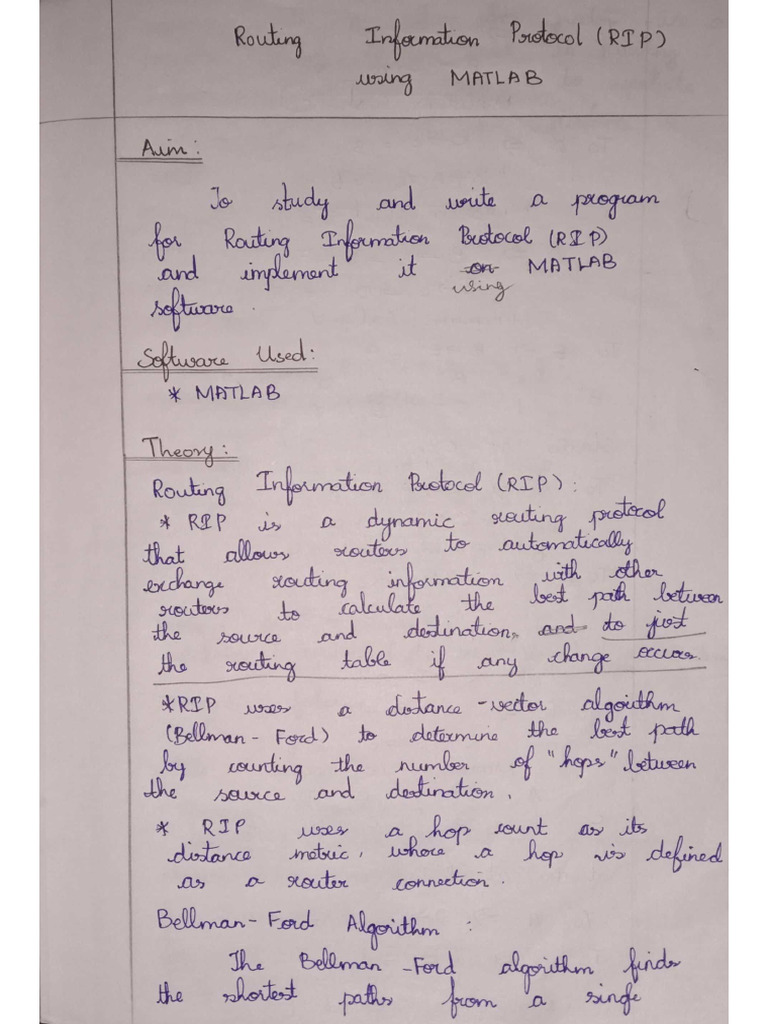 Routing Information Protocol (RIP)
using MATLAB
Aim:
To study and write a program
for Routing Information Protocol (RIP)
and implement it on MATLAB
using
software.
Software Used:
* MATLAB
Theory:
Routing Information Protocol (RIP):
* RIP is a dynamic routing protocol
that allows routers to automatically
exchange routing information with other
routers to calculate the best path between
the source and destination, and to just
the routing table if any change occurs.
*RIP uses a distance-vector algorithm
(Bellman-Ford) to determine the best path
by counting the number of "hops" between
the source and destination.
* RIP uses a hop count as its
distance metric, where a hop is defined
as a router connection.
Bellman-Ford Algorithm :
The Bellman-Ford algorithm finds
the shortest paths from a single